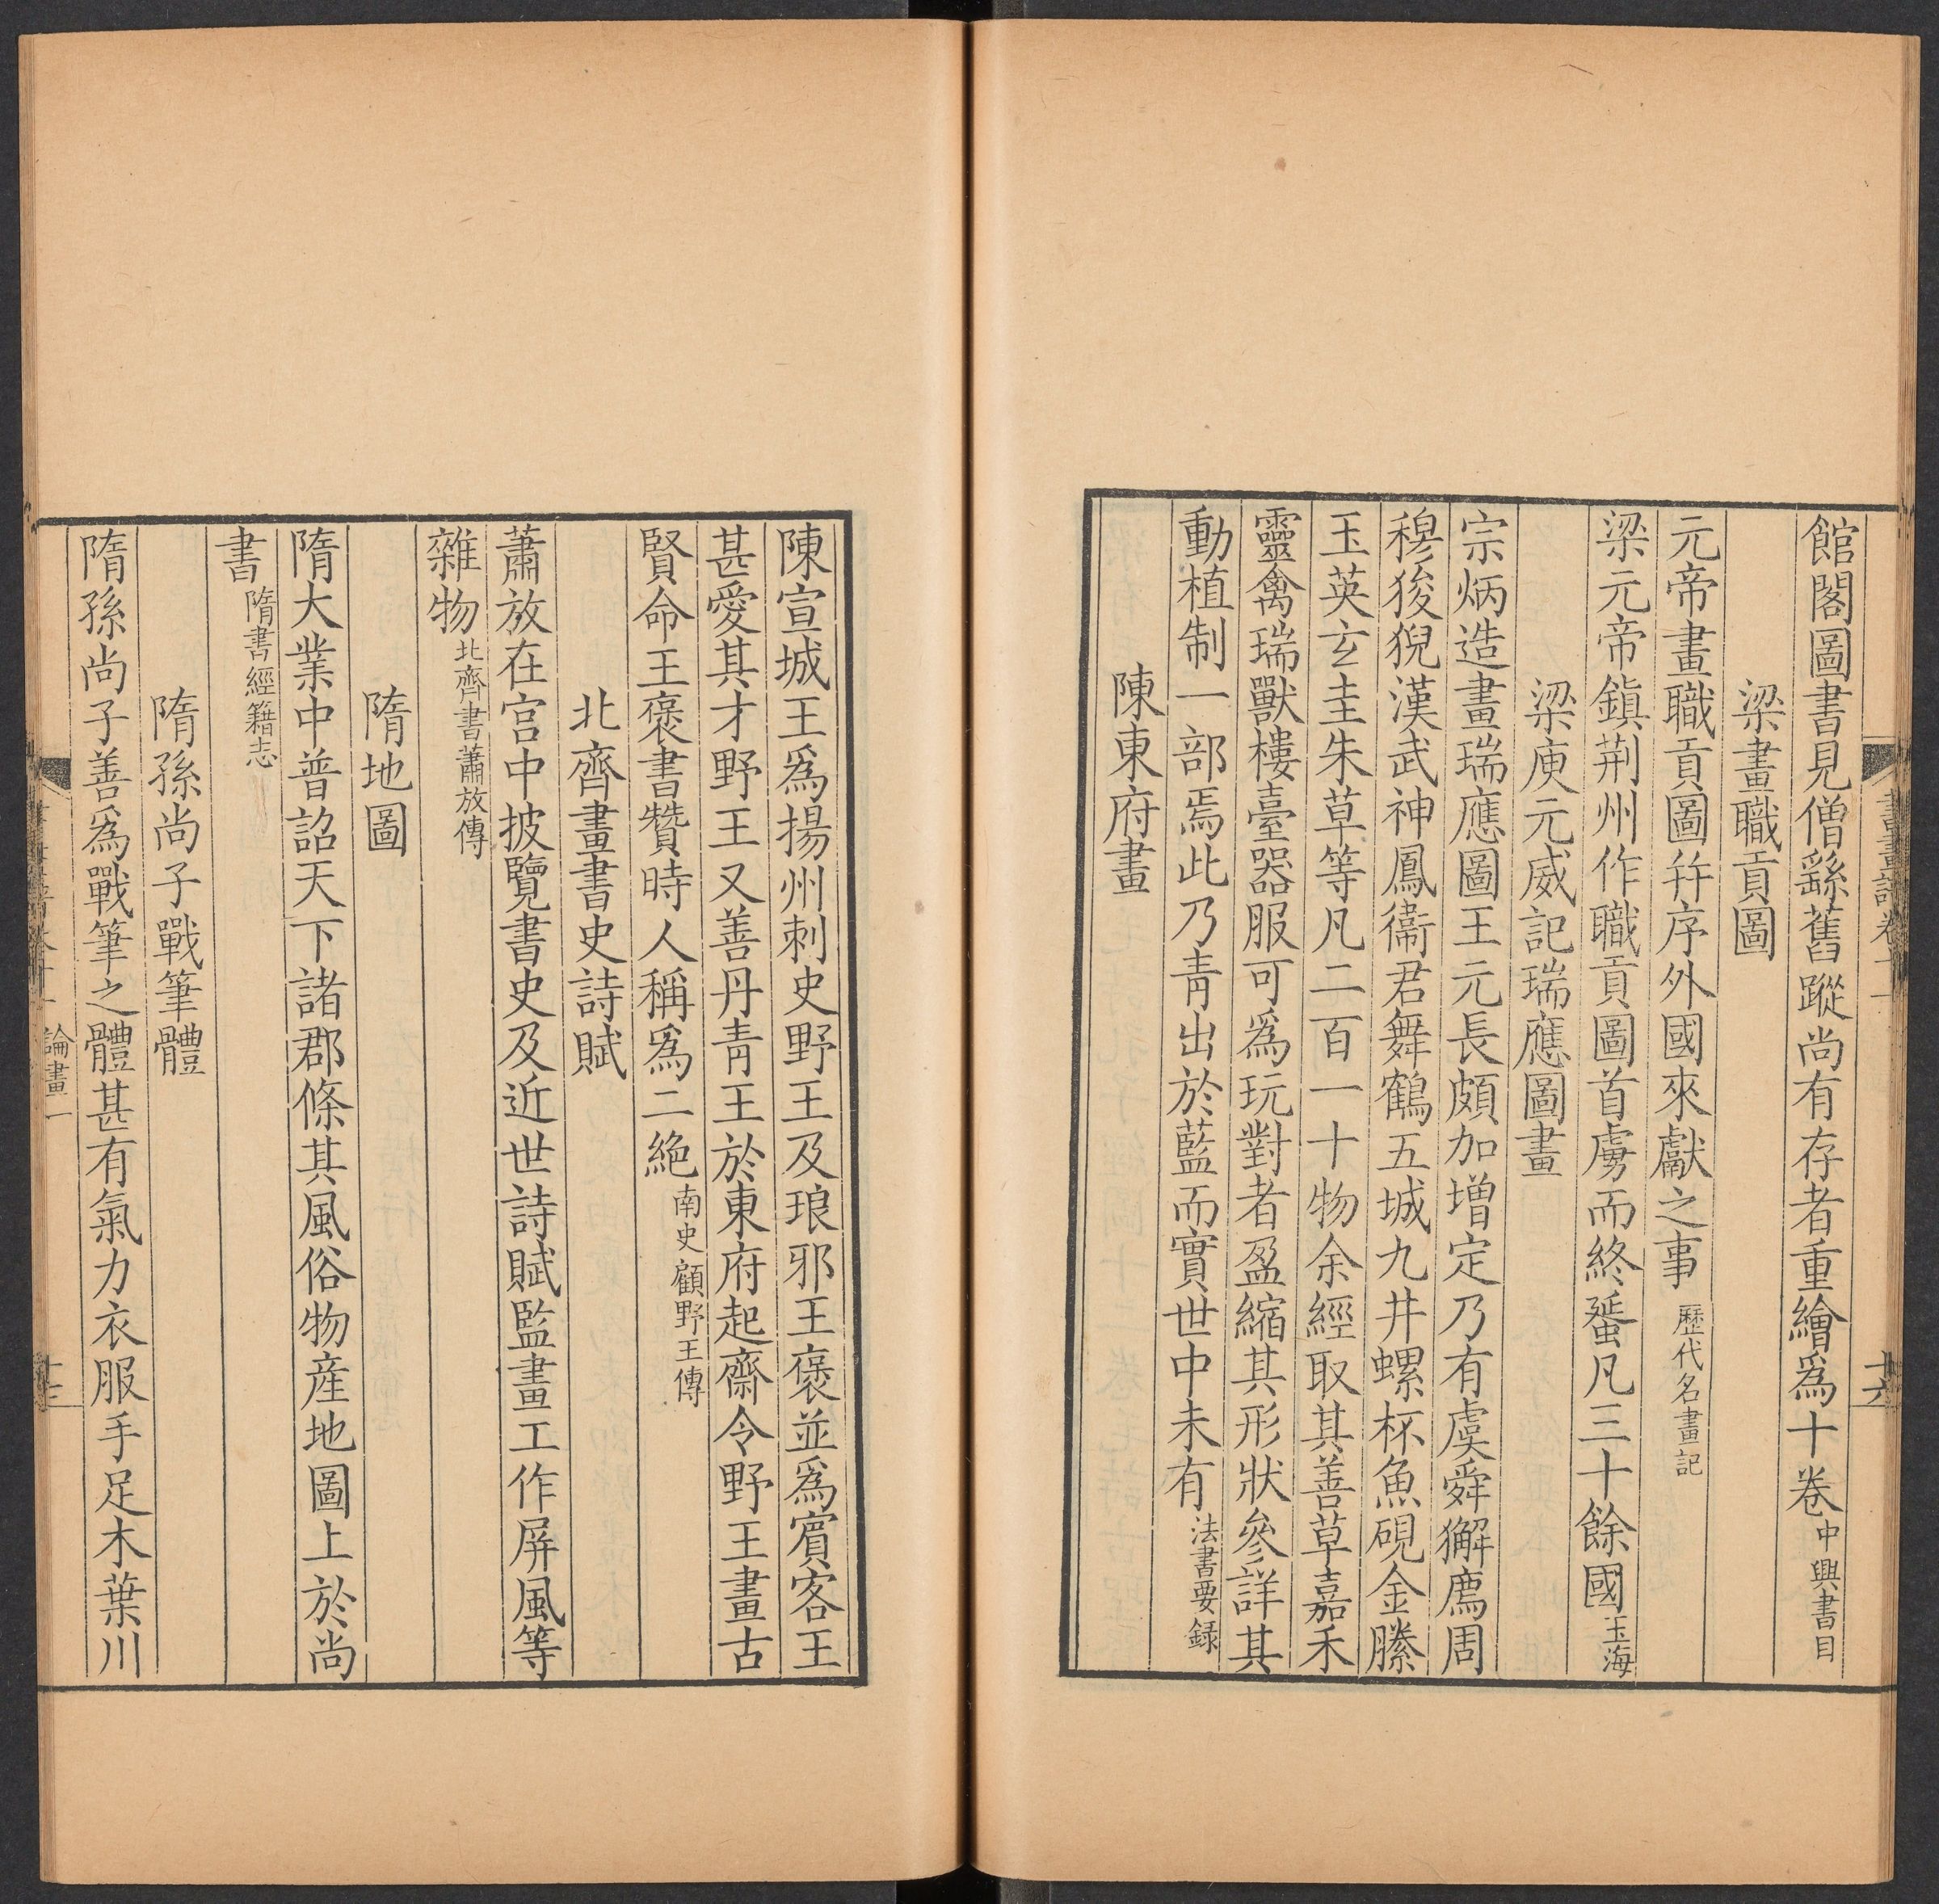 館閣圖書見僧繇舊蹤尚有存者重繪爲十卷中興書目
梁畫職貢圖
元帝畫職貢圖幷序外國來獻之事歷代名畫記
梁元帝鎭荆州作職貢圖首虜而終蜑凡三十餘國玉海
梁庾元威記瑞應圖畫
宗炳造畫瑞應圖王元長頗加增定乃有虞舜獬廌周
穆狻猊漢武神鳳衞君舞鶴五城九井螺杯魚硯金縢
玉英玄圭朱草等凡二百一十物余經取其善草嘉禾
靈禽瑞獸樓臺器服可爲玩對者盈縮其形狀參詳其
動植制一部焉此乃青出於藍而實世中未有法書要録
陳東府畫
陳宣城王爲揚州刺史野王及琅邪王褒並爲賓客王
甚愛其才野王又善丹青王於東府起齋令野王畫古
賢命王褒書贊時人稱爲二絶南史顧野王傳
北齊畫書史詩賦
蕭放在宫中披覽書史及近世詩賦監畫工作屏風等
雜物北齊書蕭放傳
隋地圖
隋大業中普詔天下諸郡條其風俗物産地圖上於尚
書隋書經籍志
隋孫尚子戰筆體
隋孫尚子善爲戰筆之體甚有氣力衣服手足木葉川
論畫一